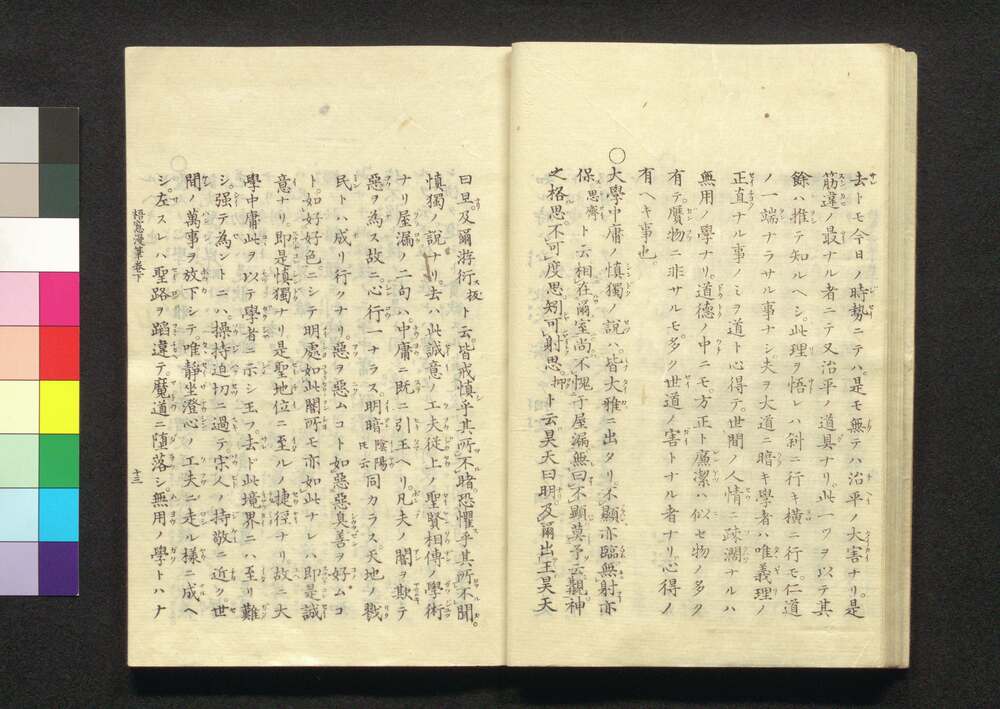 去トモ今日ノ時勢ニテハ。是モ無テハ治平ノ大害ナリ。是
筋違ノ最ナル者ニテ又治平ノ道具ナリ。此一ツヲ以テ其
餘ハ推テ知ルヘシ。此理ヲ悟レハ斜ニ行キ橫ニ行モ。仁道
ノ一端ナラサル事ナシ。夫ヲ大道ニ暗キ學者ハ唯義理ノ
正直ナル事ノミヲ道ト心得テ。世間ノ人情ニ疎濶ナルハ
無用ノ學ナリ。道德ノ中ニモ方正ト廉潔ハ似セ物ノ多ク
有テ。贋物ニ非サルモ。多ク世道ノ害トナル者ナリ。心得ノ
有ヘキ事也。
○大學中庸ノ愼獨ノ說ハ。皆大雅ニ出タリ。不顯亦臨無射亦
保。思齊ト云相在爾室尚不愧于屋漏無曰不顯莫予云覯神
之格思不可度思矧可射思。抑ト云昊天曰明及爾出王昊天
曰旦及爾游衍。板ト云皆戒愼乎其所不睹恐懼乎其所不聞。
愼獨ノ說ナリ。去ハ此誠意ノ工夫從上ノ聖賢相傳ノ學術
ナリ屋漏ノ二句ハ。中庸ニ既ニ引玉ヘリ。凡夫ノ闇ヲ欺テ
惡ヲ為ス故ニ。心行一ナラス。明暗陰陽氏云同カラス。天地ノ戮
民トハ成リ行クナリ惡ヲ惡ムコト如惡惡臭善ヲ好ムコ
ト。如好好色ニシテ明處如此闇所モ亦如此ナレハ即是誠
意ナリ即是愼獨ナリ是聖地位ニ至ルノ捷徑ナリ故ニ大
學中庸此ヲ以テ學者ニ示シ玉フ。去ド此境界ニハ至リ難
シ。强テ為ントニハ。操持迫切ニ過テ宋人ノ持敬ニ近ク。世
間ノ萬事ヲ放下シテ唯靜坐澄心ノ工夫ニ走ル樣ニ成ヘ
シ。左スレハ聖路ヲ蹈違テ。魔道ニ墮落シ無用ノ學トハナ
梧窓漫筆卷下
十三